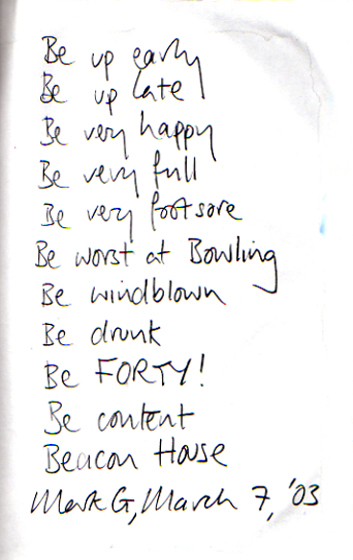 Be up early
Be up late
Be very happy
Be very full
Be very footsore
Be worst at Bowling
Be windblown
Be drunk
Be FORTY!
Be content
Beacon House
Mark G, March 7, '03